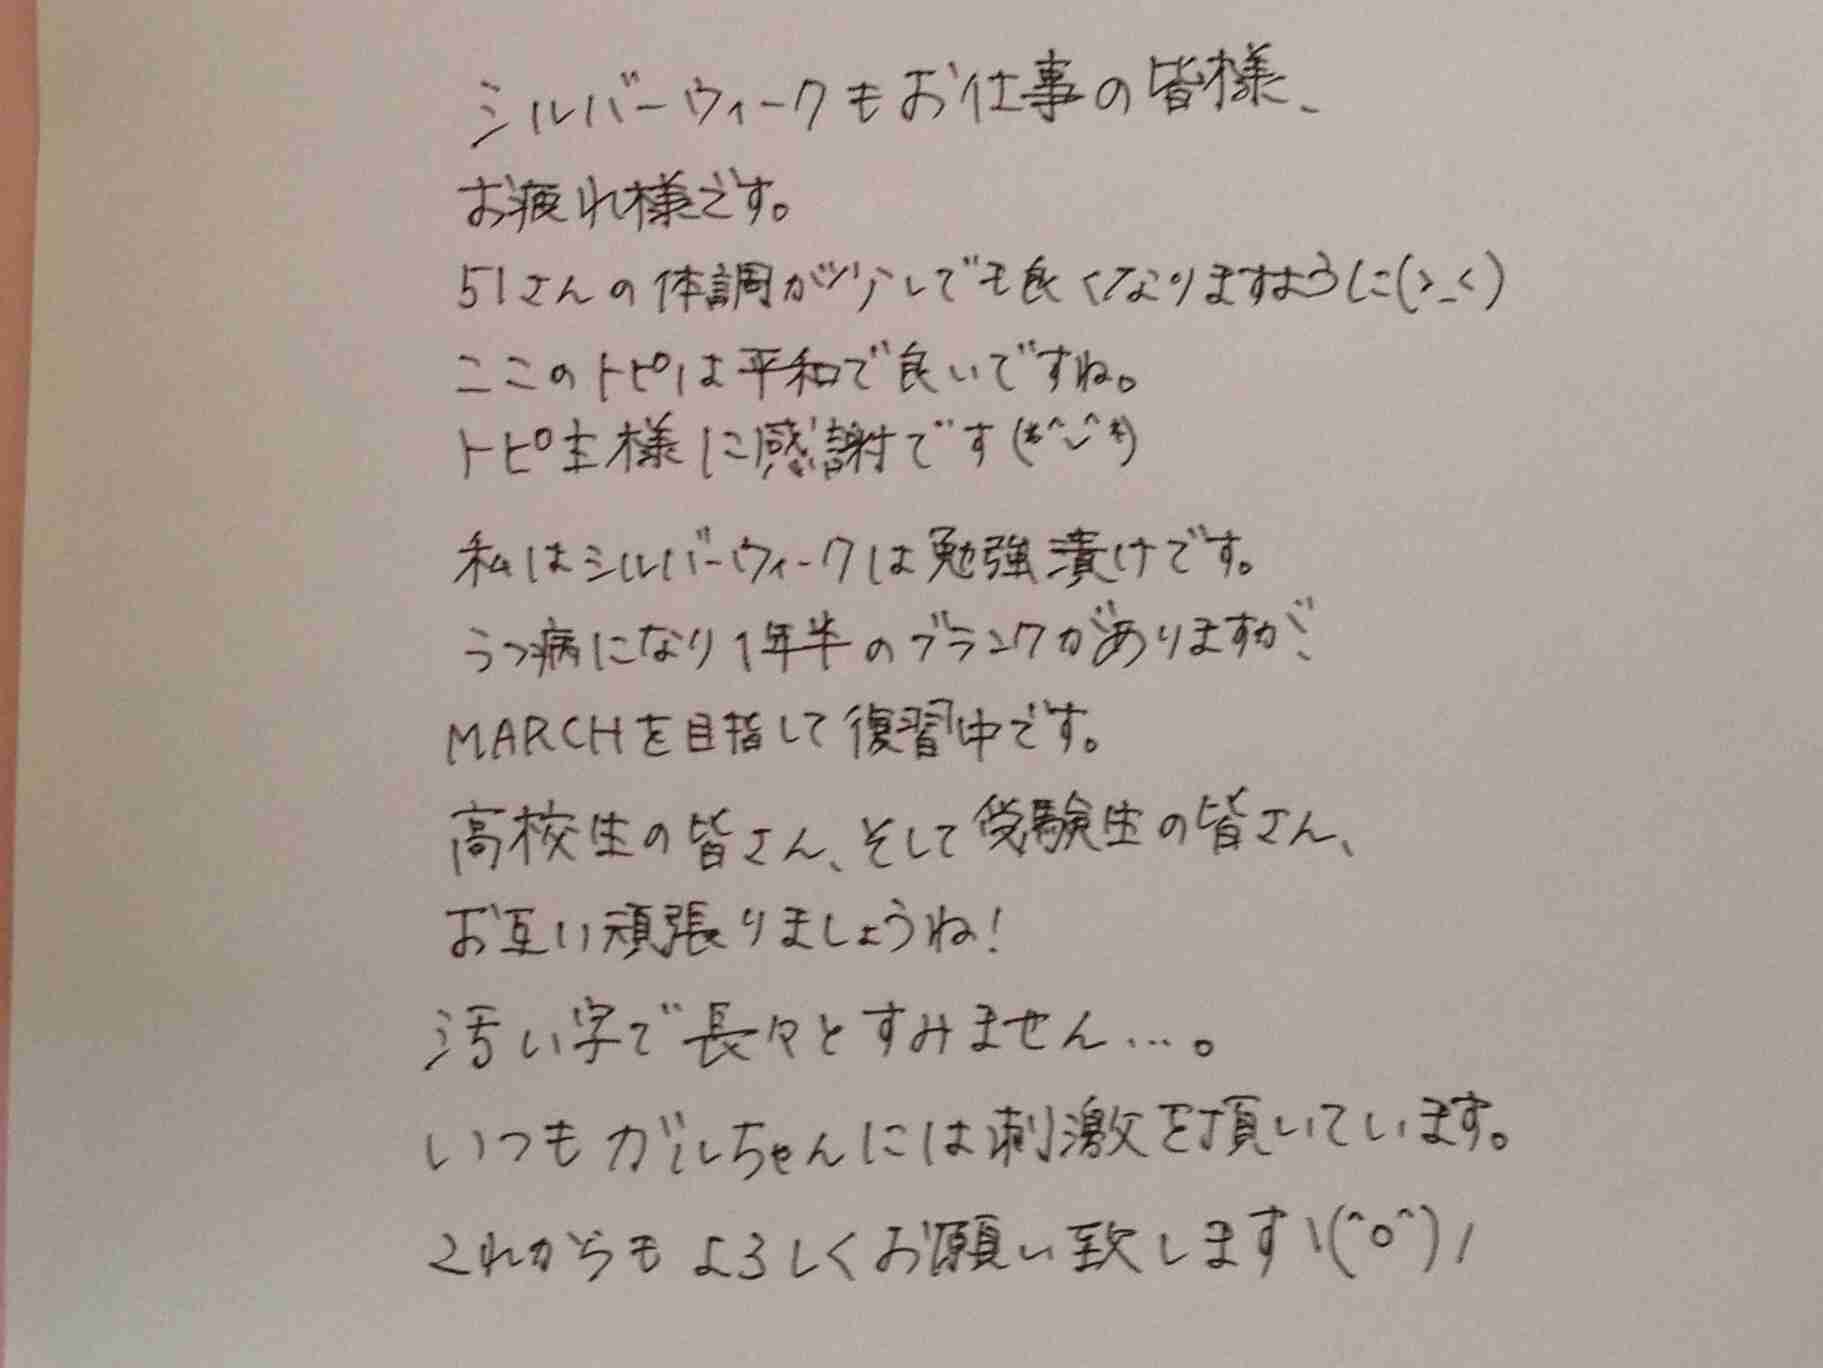 シルバーウィークもお仕事の皆様、
お疲れ様です。
51さんの体調が少しでも良くなりますように(>_<)
ここのトピは平和で良いですね。
トピ主様に感謝です(*^^*)
私はシルバーウィークは勉強漬けです。
うつ病になり1年半のブランクがありますが、
MARCHを目指して復習中です。
高校生の皆さん、そして受験生の皆さん、
お互い頑張りましょうね!
汚い字で長々とすみません…。
いつもガルちゃんには刺激を頂いています。
これからもよろしくお願い致します\(^o^)/